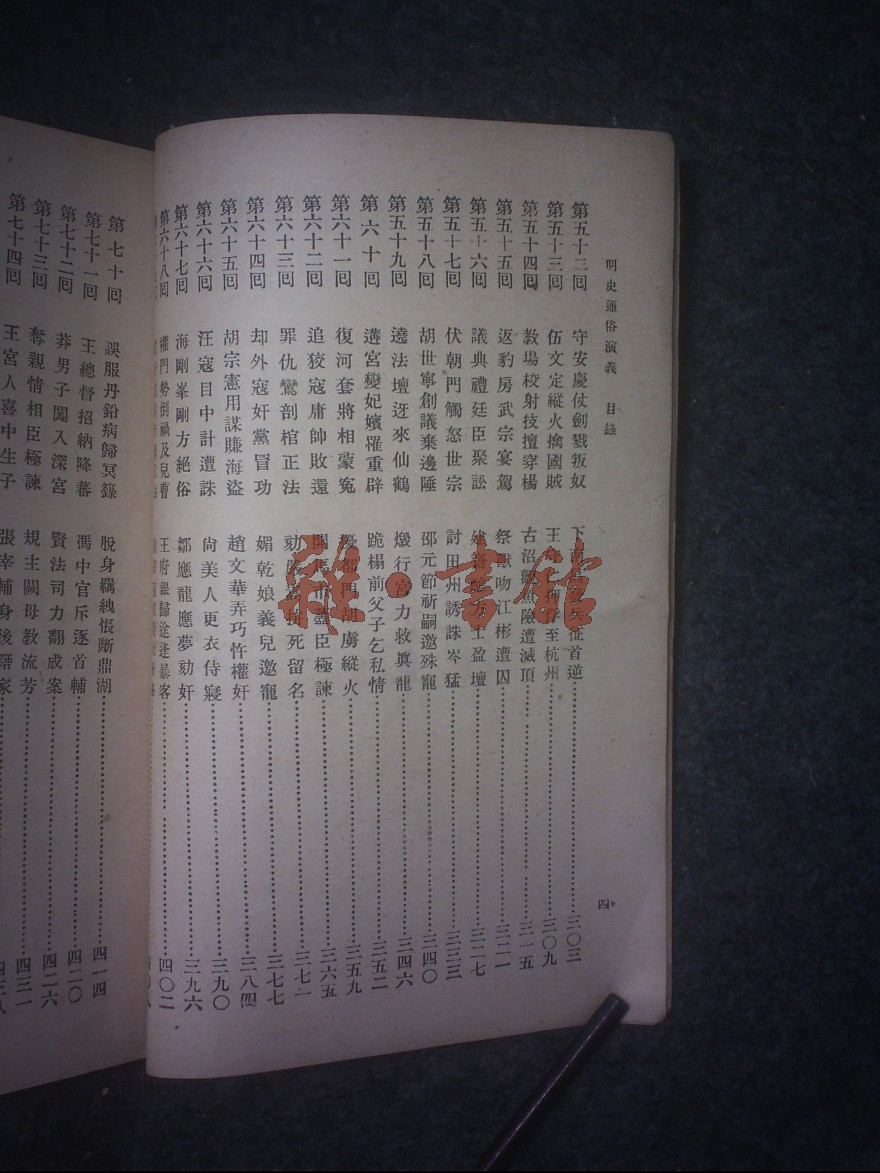 明史通俗演義 目錄
四
第五十二回 守安慶仗劍戮叛奴 下南昌發兵征首逆 三〇三
第五十三回 伍文定縱火擒國賊 王 俘至杭州 三〇九
第五十四回 教場校射技擅穿楊 古沼觀魚險遭滅頂 三一五
第五十五回 返豹房武宗宴駕 祭獸吻江彬遭囚 三二一
第五十六回 議典禮廷臣聚訟 建齋醮方士盈壇 三二七
第五十七回 伏朝門觸怒世宗 討田州誘誅岑猛 三三三
第五十八回 胡世寧創議棄邊陲 邵元節祈嗣邀殊寵 三四〇
第五十九回 遶法壇迓來仙鶴 燬行宮力救眞龍 三四六
第六十回 遘宮變妃嬪罹重辟 跪榻前父子乞私情 三五二
第六十一回 復河套將相蒙冤 擾都門胡虜縱火 三五九
第六十二回 追狡寇庸帥敗還 開馬市藎臣極諫 三六五
第六十三回 罪仇鸞剖棺正法 劾嚴嵩拚死留名 三七一
第六十四回 却外寇奸黨冒功 媚乾娘義兒邀寵 三七七
第六十五回 胡宗憲用謀賺海盜 趙文華弄巧忤權奸 三八四
第六十六回 汪寇目中計遭誅 尙美人更衣侍寢 三九〇
第六十七回 海剛峯剛方絕俗 鄒應龍應夢劾奸 三九六
第六十八回 權門勢倒禍及兒曹 王府銀歸途逢暴客 四〇二
四〇八
第七十回 誤服丹鉛病歸冥籙 脫身羈紲悵斷鼎湖 四一四
第七十一回 王總督招納降蕃 馮中官斥逐首輔 四二〇
第七十二回 莽男子闖入深宮 賢法司力翻成案 四二六
第七十三回 奪親情相臣極諫 規主闕母敎流芳 四三一
第七十四回 王宮人喜中生子 張宰輔身後籍家 四三八
雅·書館